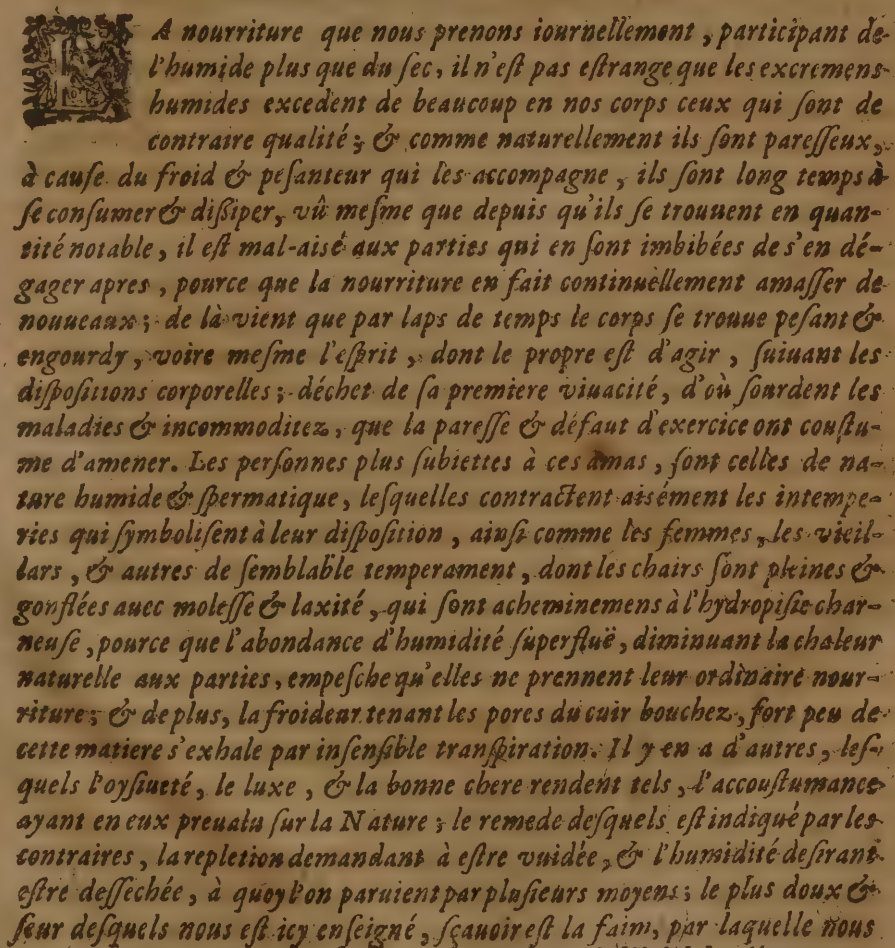 LA nourriture que nous prenons iournellement, participant de
l'humide plus que du ſec, il n'eſt pas eſtrange que les excremens
humides excedent de beaucoup en nos corps ceux qui ſont de
contraire qualité; & comme naturellement ils ſont pareſſeux,
à cauſe du froid & peſanteur qui les accompagne, ils ſont long temps à
ſe conſumer & diſſiper, vû meſme que depuis qu'ils ſe trouuent en quan-
tité notable, il eſt mal-aisé aux parties qui en ſont imbibées de s'en dé-
gager apres, pource que la nourriture en fait continuellement amaſſer de
nouueaux; de là vient que par laps de temps le corps ſe trouue peſant &
engourdy, voire meſme l'eſprit, dont le propre eſt d'agir, ſuiuant les
diſpoſitions corporelles; déchet de ſa premiere viuacité, d'où ſourdent les
maladies & incommoditez, que la pareſſe & défaut d'exercice ont couſtu-
me d'amener. Les perſonnes plus ſubiettes à ces amas, ſont celles de na-
ture humide & ſpermatique, leſquelles contractent aisément les intempe-
ries qui ſymboliſent à leur diſpoſition, ainſi comme les femmes, les vieil-
lars, & autres de ſemblable temperament, dont les chairs ſont pleines &
gonflées auec moleſſe & laxité, qui ſont acheminemens à l'hydropiſie char-
neuſe, pource que l'abondance d'humidité ſuperfluë, diminuant la chaleur
naturelle aux parties, empeſche qu'elles ne prennent leur ordinaire nour-
riture; & de plus, la froideur tenant les pores du cuir bouchez, fort peu de
cette matiere s'exhale par inſenſible tranſpiration. Il y en a d'autres, leſ-
quels l'oyſiueté, le luxe, & la bonne chere rendent tels, l'accouſtumance
ayant en eux preualu ſur la Nature; le remede deſquels eſt indiqué par les
contraires, la repletion demandant à eſtre vuidée, & l'humidité deſirant
eſtre deſſéchée, à quoy l'on paruient par pluſieurs moyens; le plus doux &
ſeur deſquels nous eſt icy enſeigné, ſçauoir eſt la faim, par laquelle nous